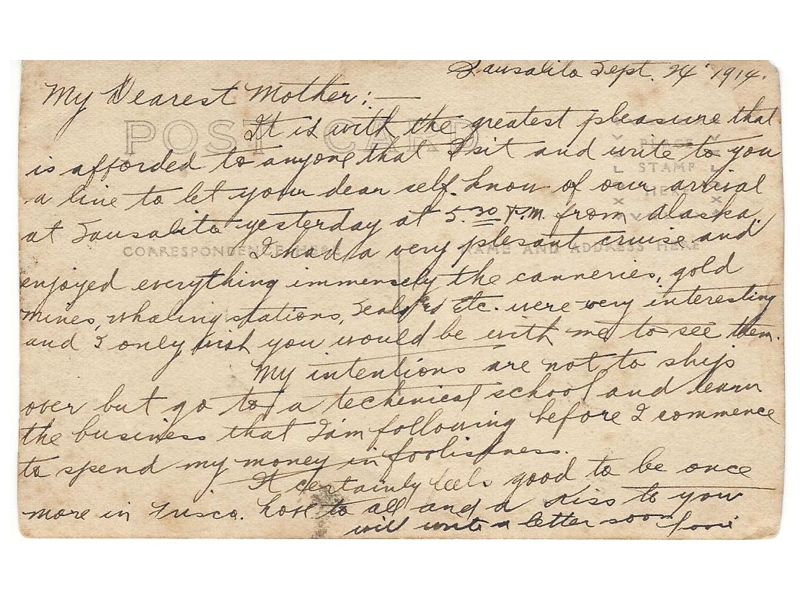 Sausalito Sept. 24' 1914.
My Dearest Mother:—
POST CARD
It is with the greatest pleasure that
is afforded to anyone that I sit and write to you
PLACE
STAMP
HERE
a line to let your dear self know of our arrival
at Sausalito yesterday at 5.30 P.M. from Alaska.
CORRESPONDENCE HERE
NAME AND ADDRESS HERE
I had a very plesant cruise and
enjoyed everything immensely the canneries, gold
mines, whaling stations, Etc. were very interesting
and I only wish you would be with me to see them.
My intentions are not to ship
over but go to a techinicel school and learn
the business that I am following before I commence
to spend my money in foolishness.
It certainly feels good to be once
more in Frisco. Love to all and a kiss to you
will write a letter soon